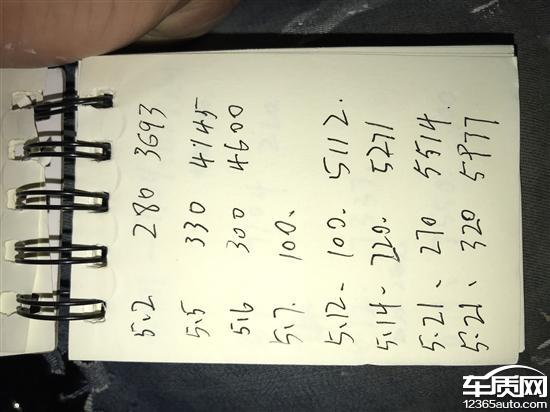 5.2 280 3693
5.5 330 4145
5.6 300 4600
5.7. 100.
5.12- 100. 5112.
5.14- 220. 5271
5.21、 270 5514.
5.21、 320 5977
车质网
12365auto.com